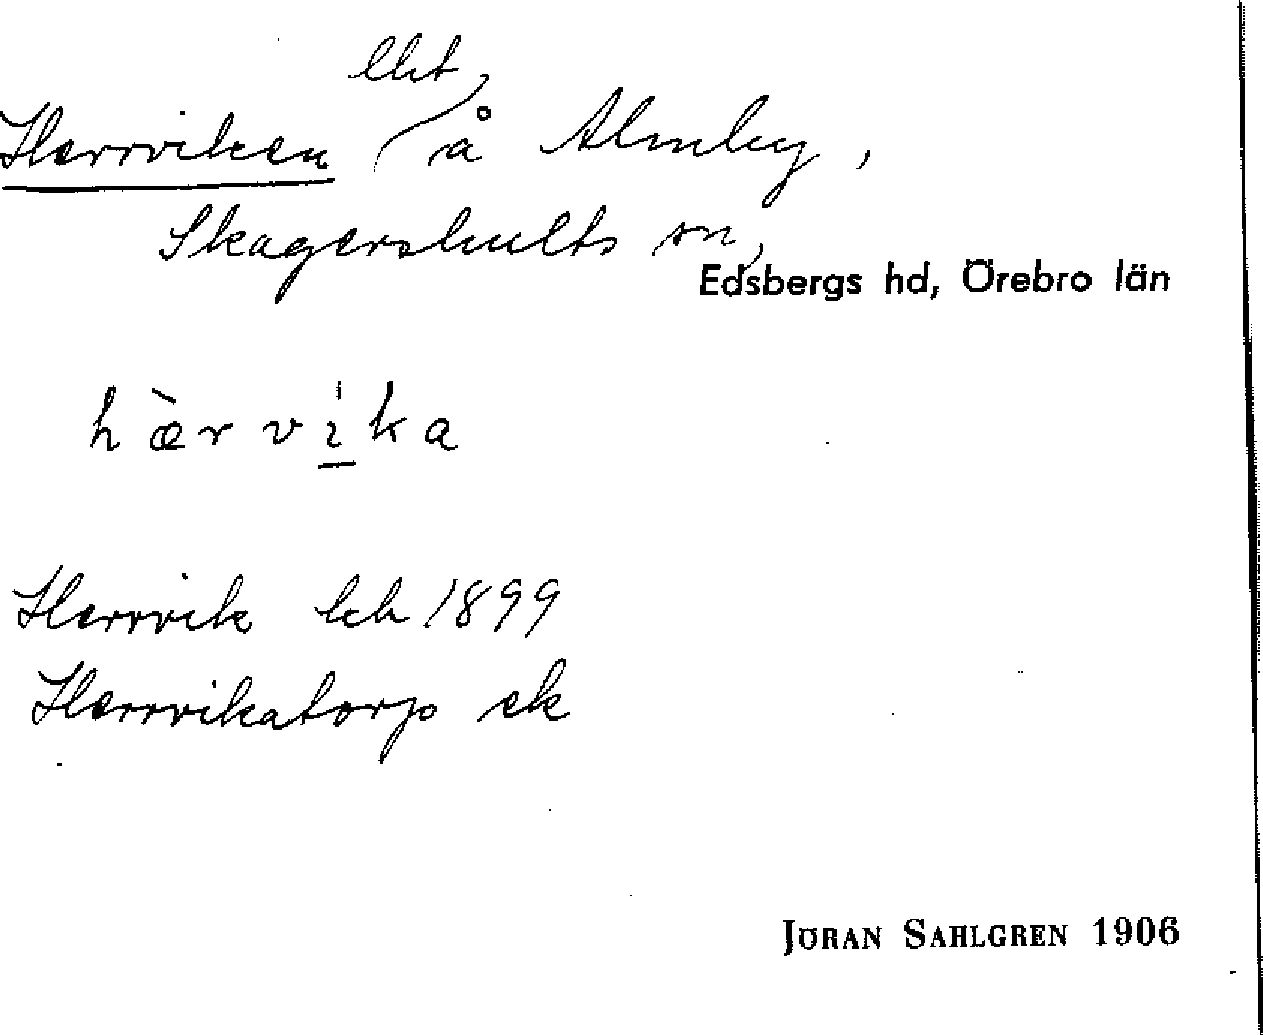 Herrviken lht å Almby,
Skagershults sn,
Edsbergs hd, Örebro län
hærvika
Herrvik hch 1899
Herrvikatorp ek
JÖRAN SAHLGREN 1906